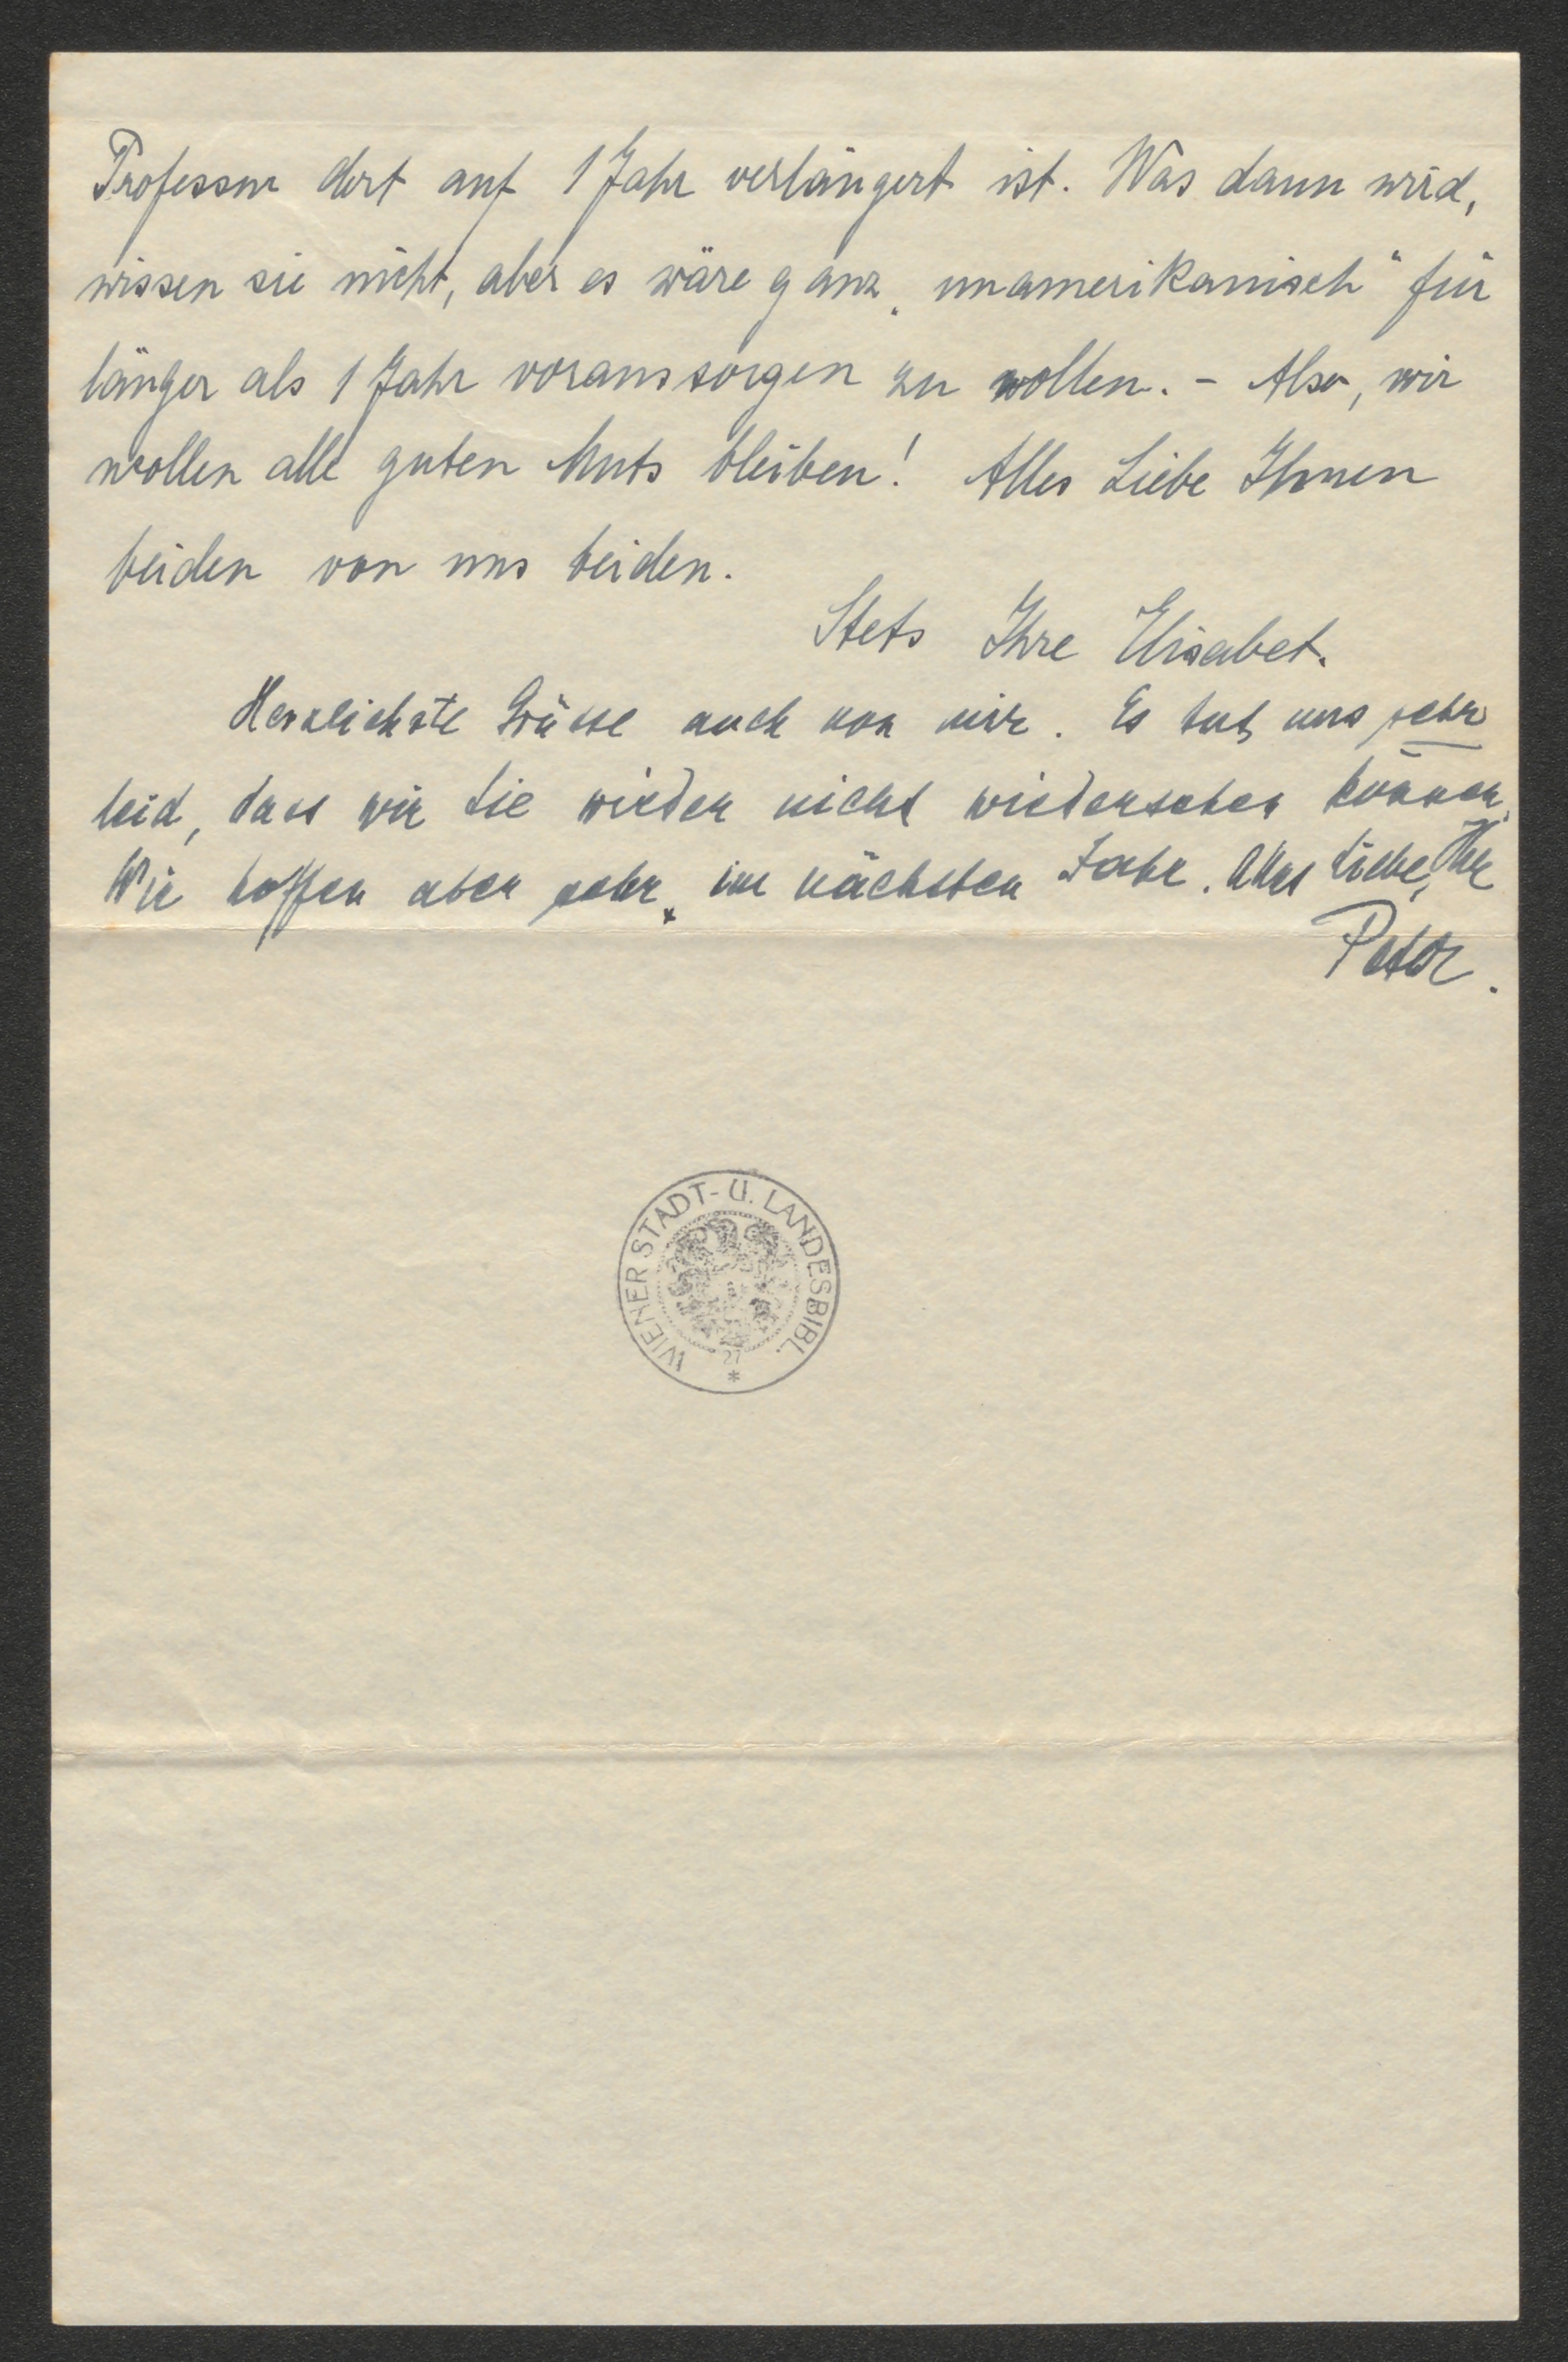 Professur dort auf 1 Jahr verlängert ist. Was dann wird,
wissen sie nicht, aber es wäre ganz „unamerikanisch“ für
länger als 1 Jahr voraussorgen zu wollen. – Also, wir
wollen alle guten Muts bleiben! Alles Liebe Ihnen
beiden von uns beiden.
Stets Ihre Elisabet.
Herzlichste Grüsse auch von mir. Es tut uns sehr
leid, dass wir Sie wieder nicht wiedersehen können.
Wir hoffen aber sehr, im nächsten Jahr. Alles Liebe, Ihr
Peter.
WIENER STADT- U. LANDESBIBL.
27
*